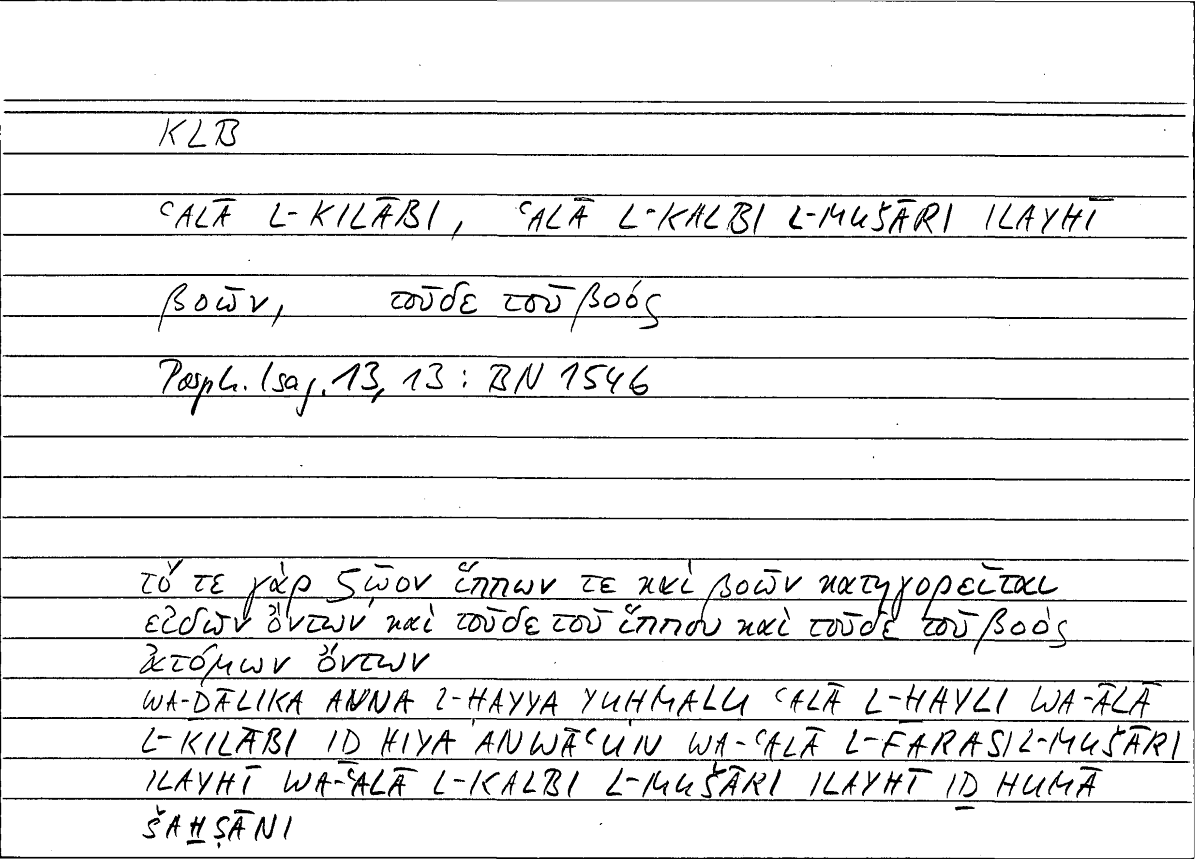 KLB
ʿALĀ L-KILĀBI, ʿALĀ L-KALBI L-MUŠĀRI ILAYHĪ
βοῶν, τοῦδε τοῦ βοός
Porph. Isag. 13, 13 : BN 1546
τό τε γὰρ ζῷον ἵππων τε καὶ βοῶν κατηγορεῖται
εἰδῶν ὄντων καὶ τοῦδε τοῦ ἵππου καὶ τοῦδε τοῦ βοός
ἀτόμων ὄντων
WA-ḎĀLIKA ANNA L-HAYYA YUHMALU ʿALĀ L-HAYLI WA-ĀLĀ
L-KILĀBI IḎ HIYA ANWĀʿUN WA-ʿALĀ L-FARASI L-MUŠĀRI
ILAYHĪ WA-ʿALĀ L-KALBI L-MUŠĀRI ILAYHĪ IḎ HUMĀ
ŠAḪṢĀNI